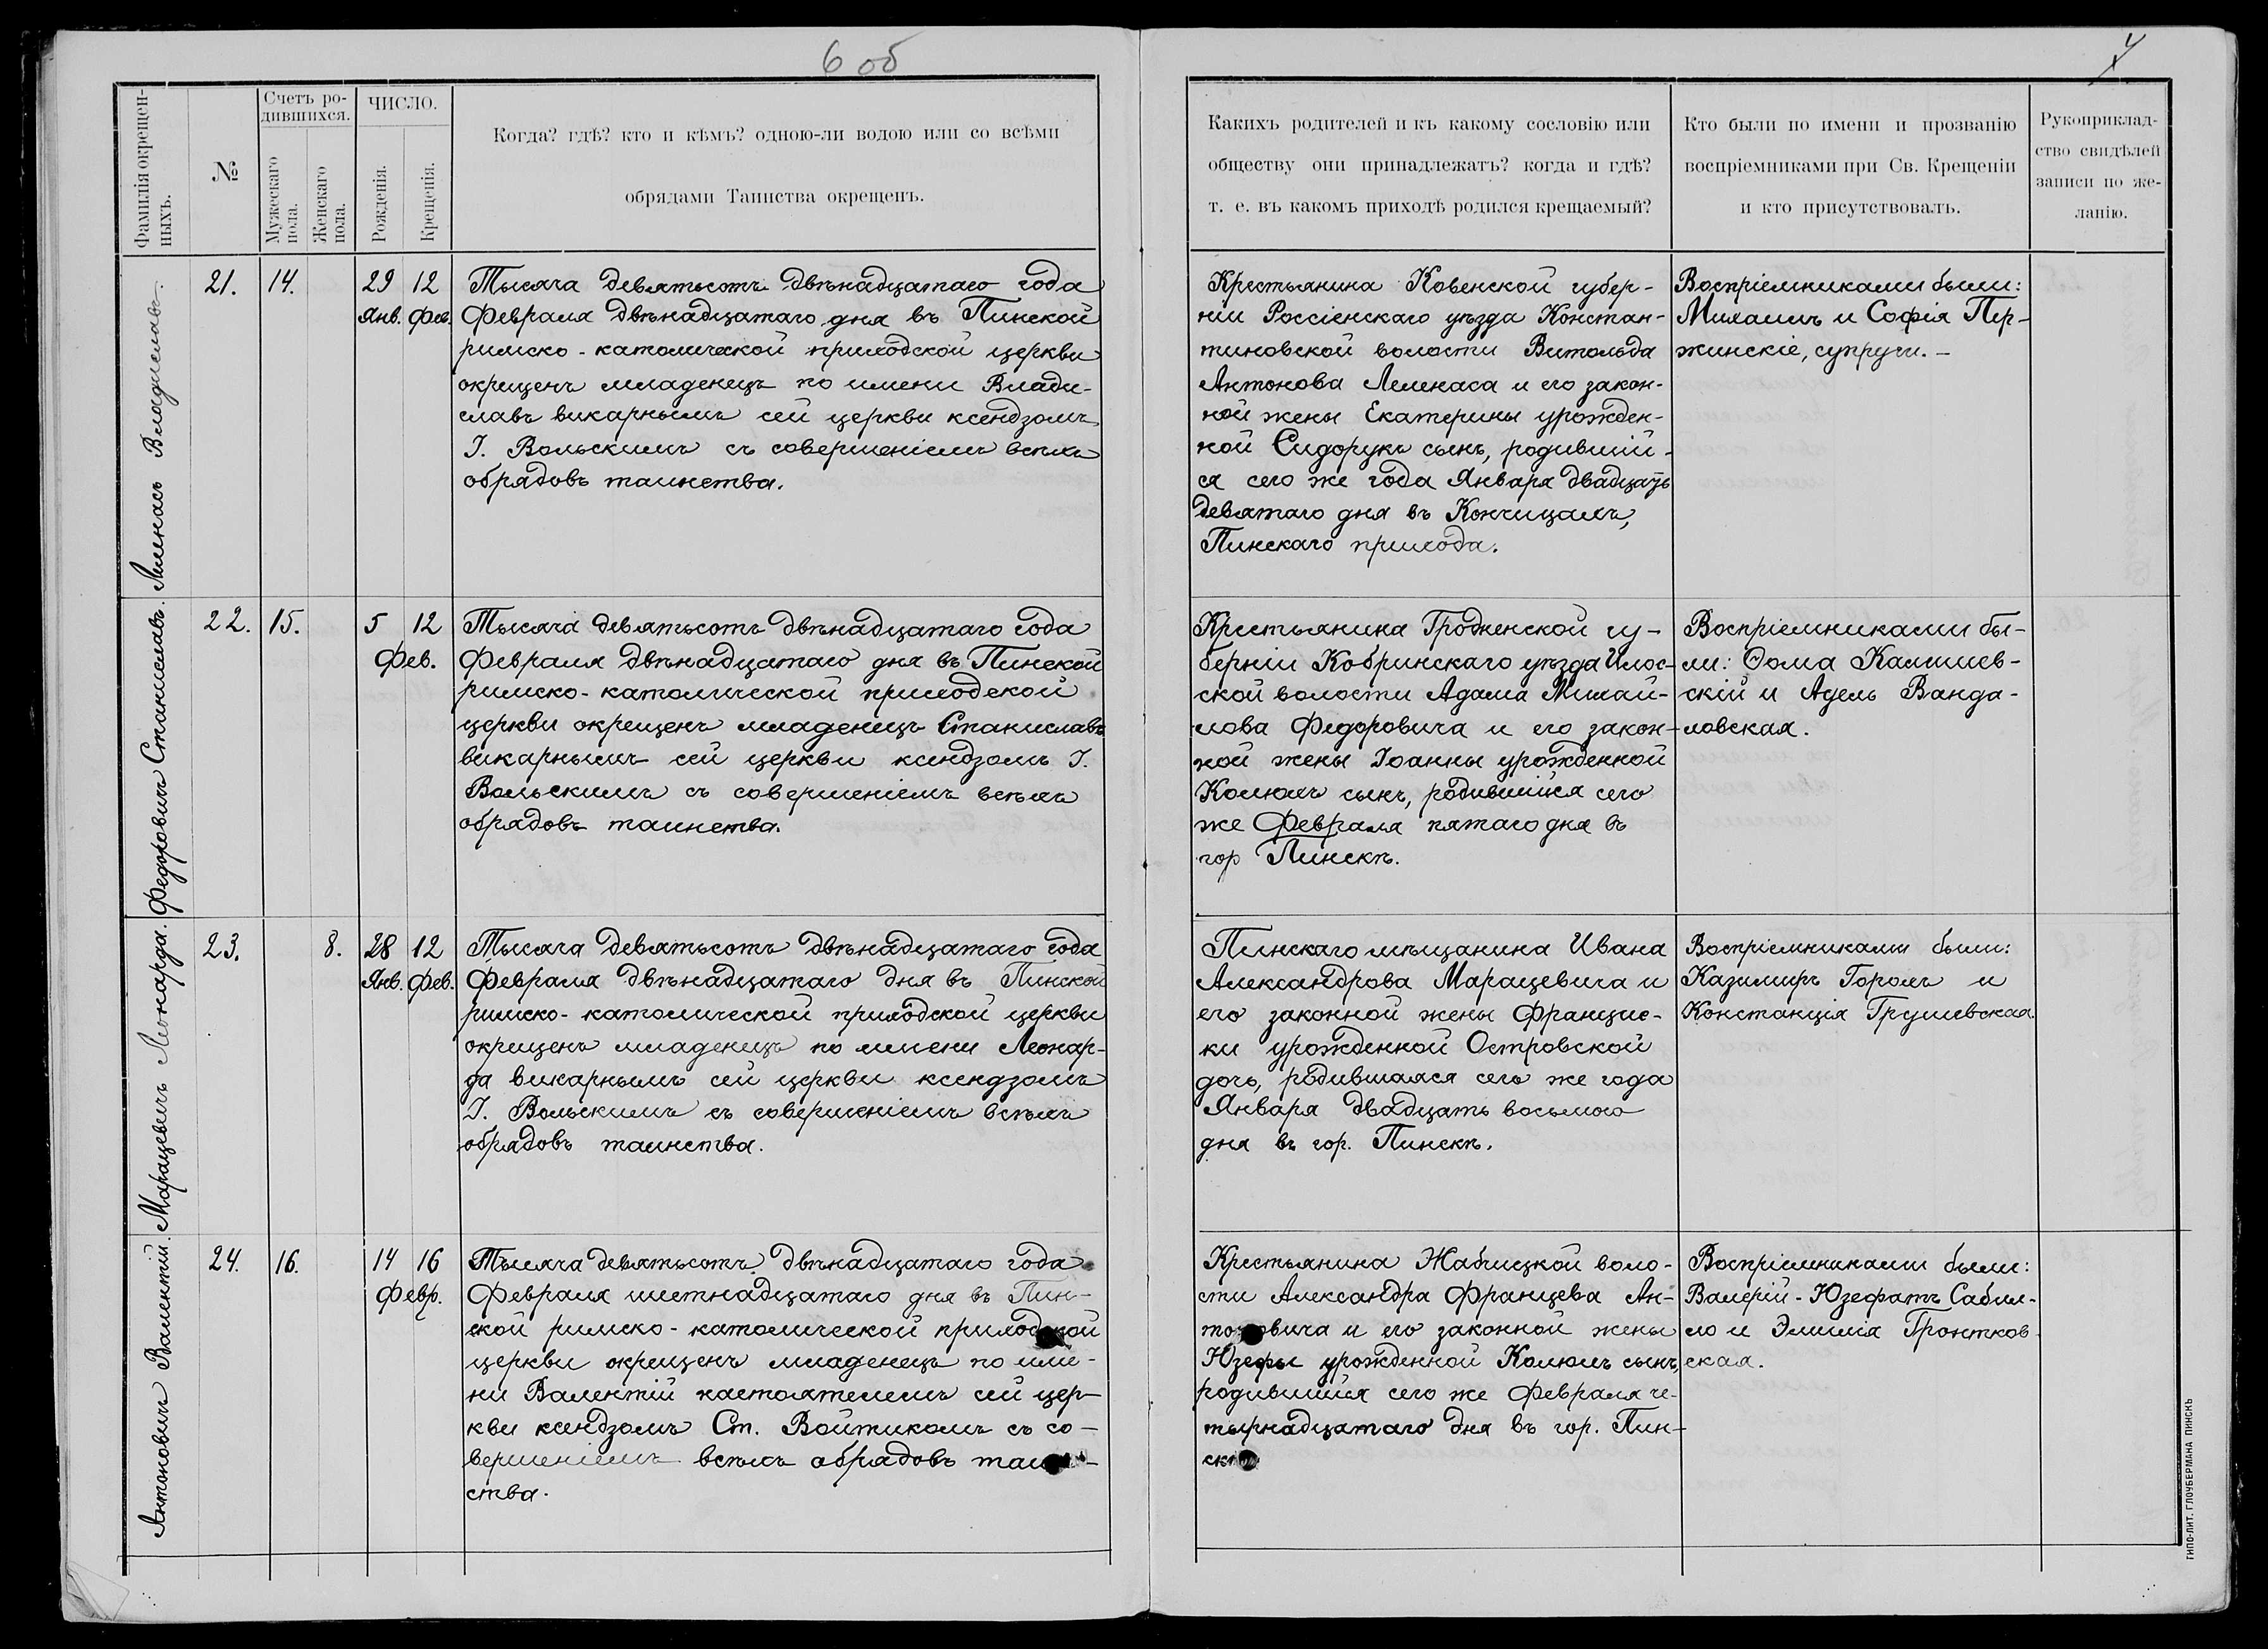 6 об
7
Фамилія окрещен-
ныхъ.
№
Счетъ ро-
дившихся.
Мужескаго
пола.
Женскаго
пола.
ЧИСЛО.
Рожденія.
Крещенія.
Когда? гдѣ? кто и кѣмъ? одною-ли водою или со всѣми
обрядами Таинства окрещенъ.
Какихъ родителей и къ какому сословію или
обществу они принадлежатъ? когда и гдѣ?
т. е. въ какомъ приходѣ родился крещаемый?
Кто были по имени и прозванію
воспріемниками при Св. Крещеніи
и кто присутствовалъ.
Рукоприклад-
ство свидѣлей
записи по же-
ланію.
Леленасъ Владиславъ.
21.
14.
29 12
Янв. Фев.
Тысяча девятьсотъ двѣнадцатаго года
Февраля двѣнадцатаго дня въ Пинской
римско-католической приходской церкви
окрещенъ младенецъ по имени Влади-
славъ викарнымъ сей церкви ксендзомъ
І. Вольскимъ съ совершеніемъ всѣхъ
обрядовъ таинства.
Крестьянина Ковенской губер-
ніи Россіенскаго уѣзда Констан-
тиновской волости Витольда
Антонова Леленаса и его закон-
ной жены Екатерины урожден-
ной Сидорукъ сынъ, родившій-
ся сего же года Января двадцать
девятаго дня въ Кончицахъ,
Пинскаго прихода.
Воспріемниками были:
Михаилъ и Софія Пер-
жинскіе, супруги.-
Федоровичъ Станиславъ.
22.
15.
5 12
Фев.
Тысяча девятьсотъ двѣнадцатаго года
Февраля двѣнадцатаго дня въ Пинской
римско-католической приходской
церкви окрещенъ младенецъ Станиславъ
викарнымъ сей церкви ксендзомъ І.
Вольскимъ съ совершеніемъ всѣхъ
обрядовъ таинства.
Крестьянина Гродненской гу-
берніи Кобринскаго уѣзда Илос-
ской волости Адама Михай-
лова Федоровича и его закон-
ной жены Іоанны урожденной
Колюхъ сынъ, родившійся сего
же Февраля пятаго дня въ
гор Пинскѣ.
Воспріемниками бы-
ли: Ѳома Калишев-
скій и Адель Ванда-
ловская.
Марацевичъ Леонарда.
23.
8.
28 12
Янв. Фев.
Тысяча девятьсотъ двѣнадцатаго года
Февраля двѣнадцатаго дня въ Пинской
римско-католической приходской церкви
окрещенъ младенецъ по имени Леонар-
да викарнымъ сей церкви ксендзомъ
І. Вольскимъ съ совершеніемъ всѣхъ
обрядовъ таинства.
Пинскаго мѣщанина Ивана
Александрова Марацевича и
его законной жены Францис-
ки урожденной Островской
дочь, родившаяся сего же года
Января двадцать восьмого
дня въ гор. Пинскѣ.
Воспріемниками были:
Казимиръ Горохъ и
Констанція Грушевская.
Антоновичъ Валентій.
24.
16.
14 16
Февр.
Тысяча девятьсотъ двѣнадцатаго года
Февраля шестнадцатаго дня въ Пин-
ской римско-католической приходской
церкви окрещенъ младенецъ по име-
ни Валентій настоятелемъ сей цер-
кви ксендзомъ Ст. Войтикомъ съ со-
вершеніемъ всѣхъ обрядовъ таин-
ства.
Крестьянина Жабчицкой воло-
сти Александра Францева Ан-
тоновича и его законной жены
Юзефы урожденной Колюхъ сынъ,
родившійся сего же Февраля че-
тырнадцатаго дня въ гор. Пин-
скѣ
Воспріемниками были:
Валерій-Юзефатъ Сабил-
ло и Эмилія Гронтков
ская.
ТИПО-ЛИТ. ГЛОУБЕРМАНА ПИНСКЪ